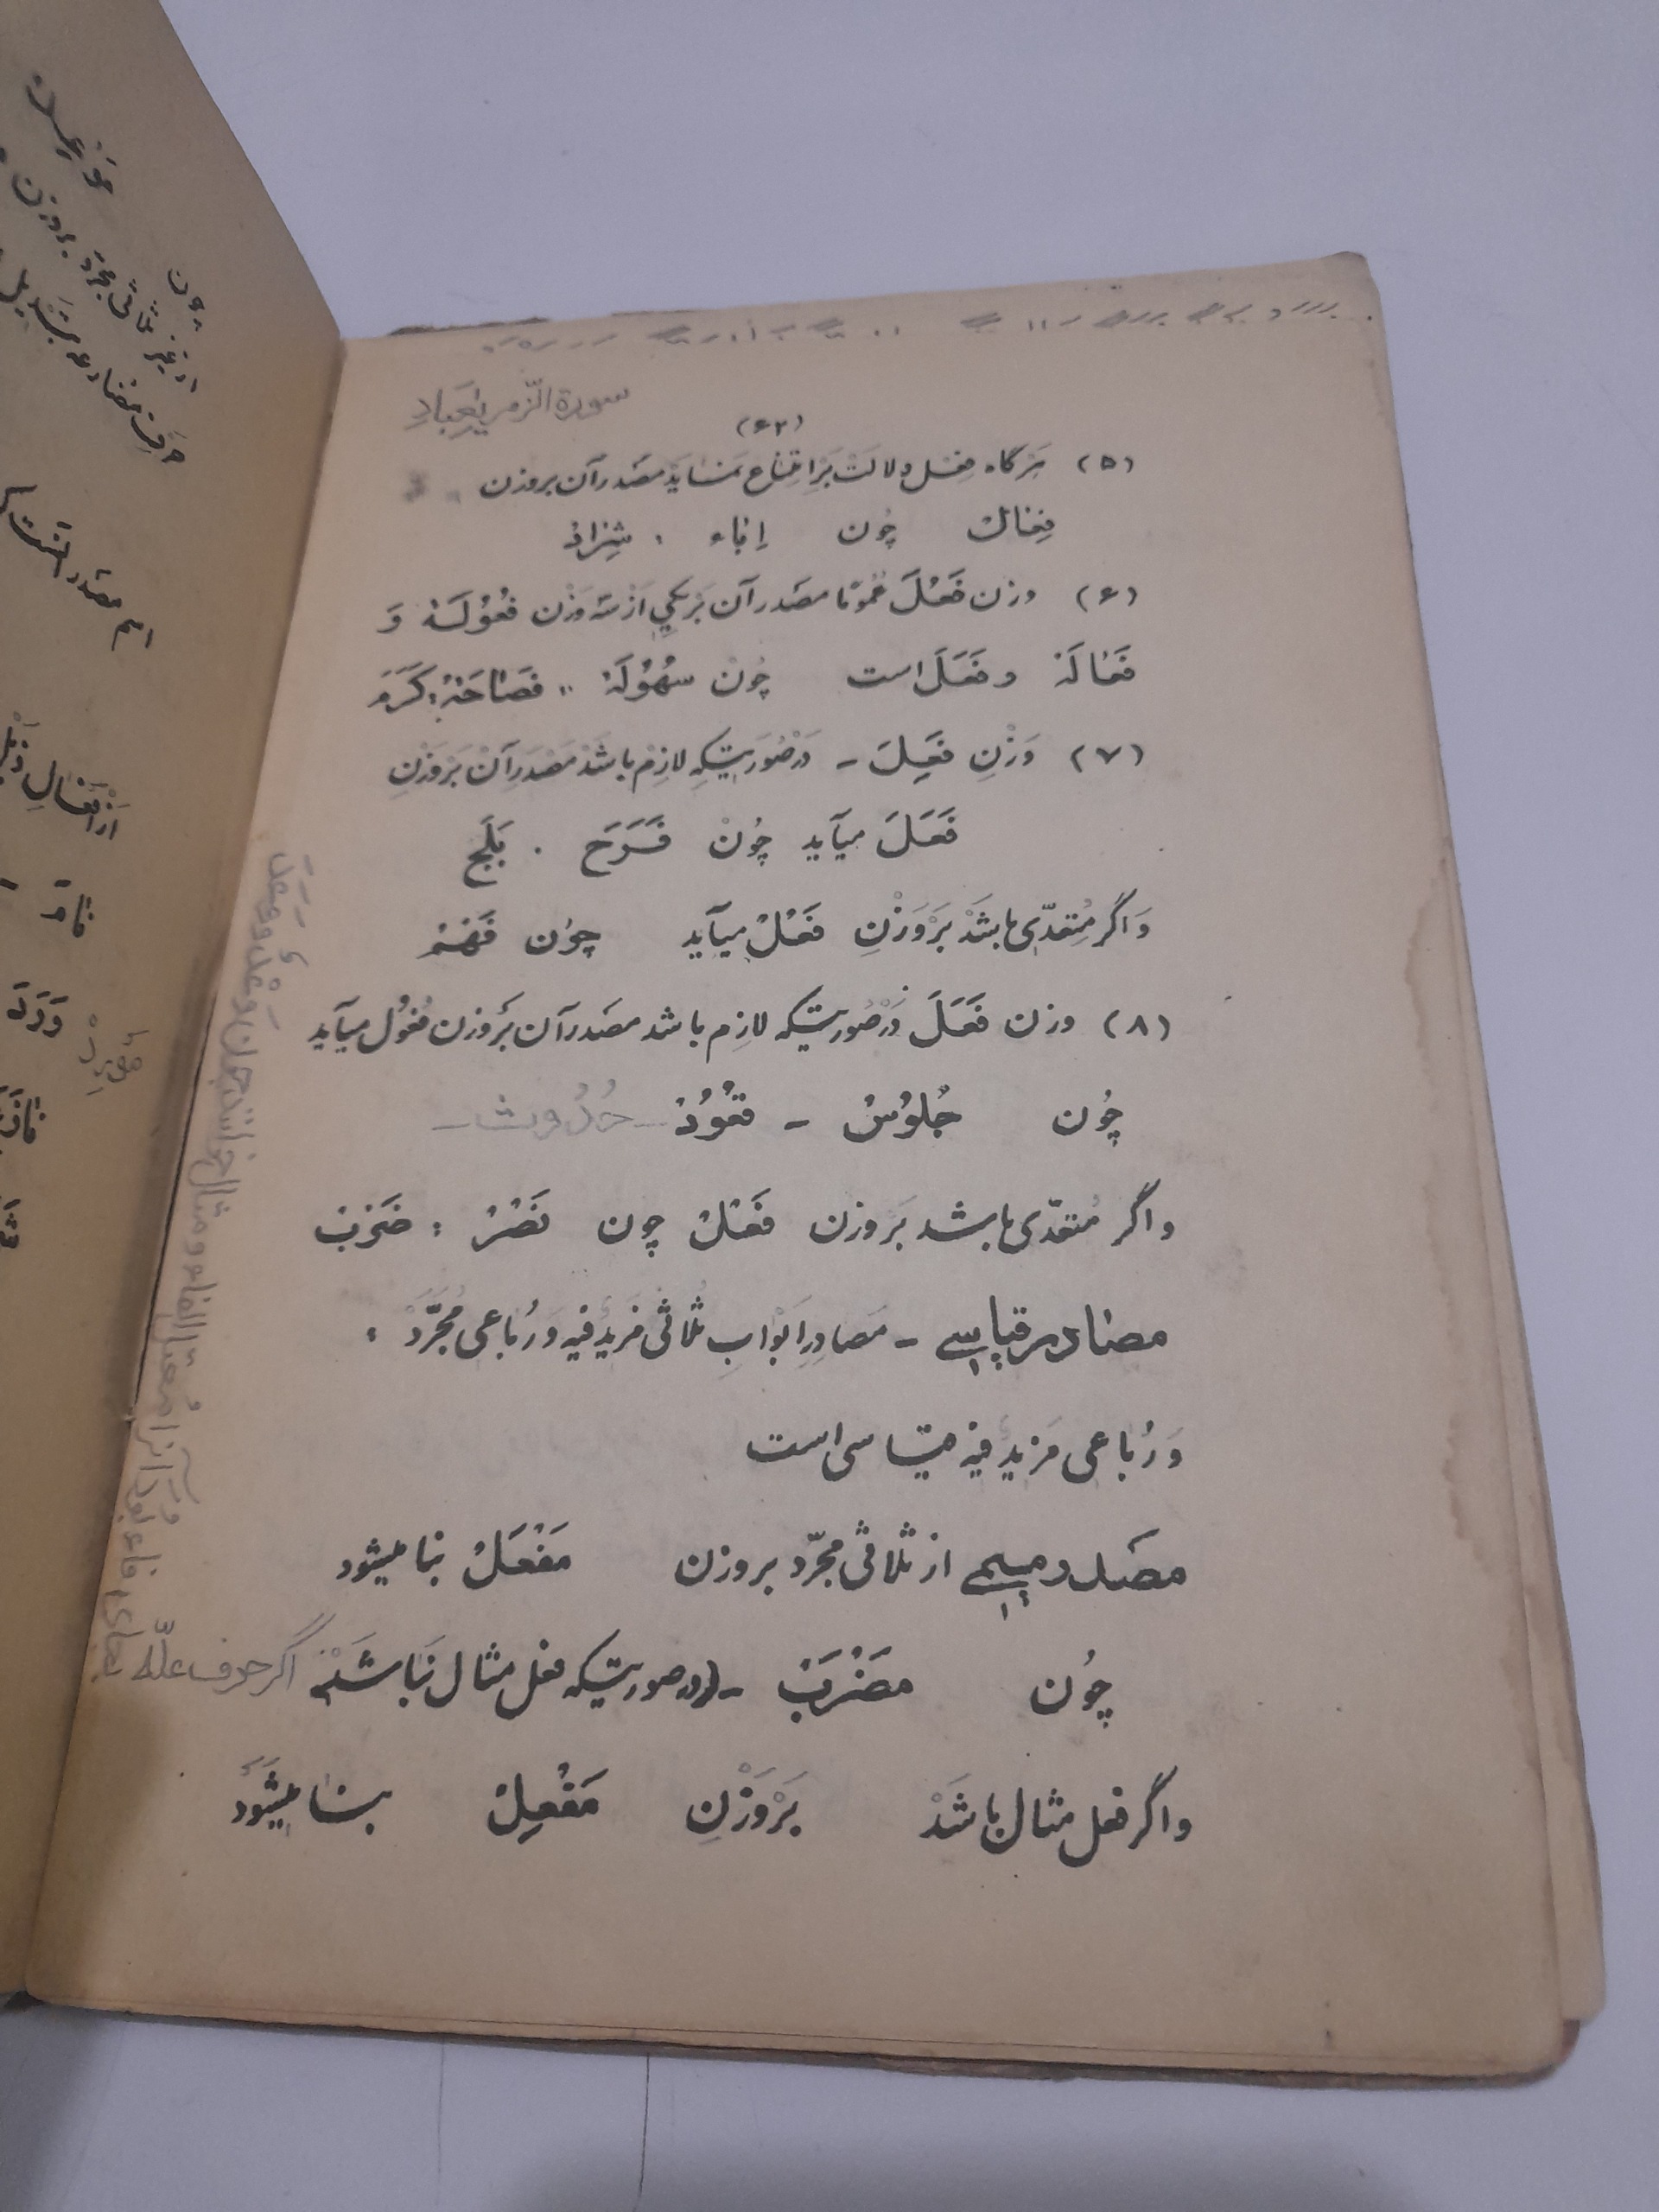 سورة الزّمر یٰعِبادِ
(۶۲)
(۵) هَرگاه فِعْل دلالَتْ بَرْ اِمْتِناع بنماید مصدر آن بروزن
فِعٰالْ چُون اِبٰاء ، شِرٰادْ
(۶) وزن فَعُلَ عُمُومًا مصدر آن بَریکی اَزْ سه وَزْن فُعُولَة وَ
فَعٰالَة و فَعَل است چُون سُهُولَة ،، فَصٰاحَة ، کَرَم
(۷) وَزْنِ فَعِلَ - دَرْصُورَتیکِه لازِمْ باشَدْ مَصْدَرِ آنْ بَرْوَزْنِ
فَعَلَ میآید چُونْ فَرَحَ . بَلَج
وَ اگر مُتِعَدّی باشَدْ بَرْوَزْنِ فَعْلْ میآید چوُن فَهْمْ
(۸) وزن فَعَلَ دَرْصُورتیکه لازِم باشد مصدر آن بَروزن فُعُول میآید
چُون جُلوُسْ - قُعُودْ - حُدُوث -
و اگر مُتعدّی باشد بَروزن فَعْلْ چون نَصْرْ : ضَرْبْ
مصٰادر قیاسے - مَصادِرِ اَبْوابِ ثُلاثی مَزیدٌ فیه وَ رُباعی مُجَرَّدْ ،
وَ رُباعی مَزیدٌ فیه قیاسی است
مصدر میمے از ثلاثی مجَرّد بروزن مَفْعَلْ بنا میشود
چُون مَضْرَبْ - (درصورتیکه فعل مثال نَباشَدْ) اگر حرف علّه بجای فاء بود آنرا معتلّ الفاء و مثال خوانند چون وَعْدٌ و وَعَدَ
و اگر فعل مثال باشَدْ بَرْوَزْنِ مَفْعِلْ بنٰا میشَوَدْ